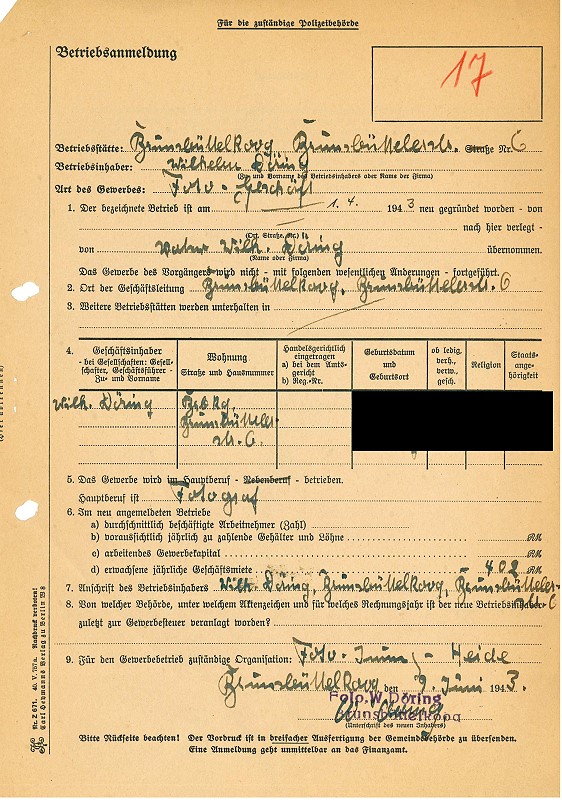 Für die zuständige Polizeibehörde
Betriebsanmeldung
17
Betriebsstätte: Brunsbüttelkoog Brunsbüttelerstr. Straße Nr. 6
Betriebsinhaber: Wilhelm Döring
(Zu- und Vorname des Betriebsinhabers oder Name der Firma)
Art des Gewerbes: Foto-Geschäft
1. Der bezeichnete Betrieb ist am 1. 4. 1943 neu gegründet worden - von
nach hier verlegt -
(Ort, Straße, Nr.)
von Vater Wilh. Döring übernommen.
(Name oder Firma)
Das Gewerbe des Vorgängers wird nicht - mit folgenden wesentlichen Änderungen - fortgeführt.
2. Ort der Geschäftsleitung Brunsbüttelkoog, Brunsbüttelerstr. 6
3. Weitere Betriebstätten werden unterhalten in
4. Geschäftsinhaber
- bei Gesellschaften: Gesell-
schafter, Geschäftsführer -
Zu- und Vorname
Wohnung
Straße und Hausnummer
Handelsgerichtlich
eingetragen
a) bei dem Amts-
gericht
b) Reg.-Nr.
Geburtsdatum
und
Geburtsort
ob ledig,
verh.,
verw.,
gesch.
Religion
Staats-
ange-
hörigkeit
Wilh. Döring Bbkg.
Brunsbütteler-
str. 6.
5. Das Gewerbe wird im Hauptberuf - Nebenberuf - betrieben.
Hauptberuf ist Fotograf
6. Im neu angemeldeten Betriebe
a) durchschnittlich beschäftigte Arbeitnehmer (Zahl)
b) voraussichtlich jährlich zu zahlende Gehälter und Löhne RM
c) arbeitendes Gewerbekapital RM
d) erwachsene jährliche Geschäftsmiete 402 RM
7. Anschrift des Betriebsinhabers Wilh. Döring, Brunsbüttelkoog, Brunsbütteler-
str. 6
8. Von welcher Behörde, unter welchem Aktenzeichen und für welches Rechnungsjahr ist der neue Betriebsinhaber
zuletzt zur Gewerbesteuer veranlagt worden?
9. Für den Gewerbebetrieb zuständige Organisation: Foto - Heide
Brunsbüttelkoog den 9. Juni 1943.
Foto W. Döring
Brunsbüttelkoog
W. Döring
(Unterschrift des neuen Inhabers)
Bitte Rückseite beachten! Der Vordruck ist in dreifacher Ausfertigung der Gemeindebehörde zu übersenden.
Eine Anmeldung geht unmittelbar an das Finanzamt.
Nachdruck verboten!
Carl Heymanns Verlag zu Berlin W 8